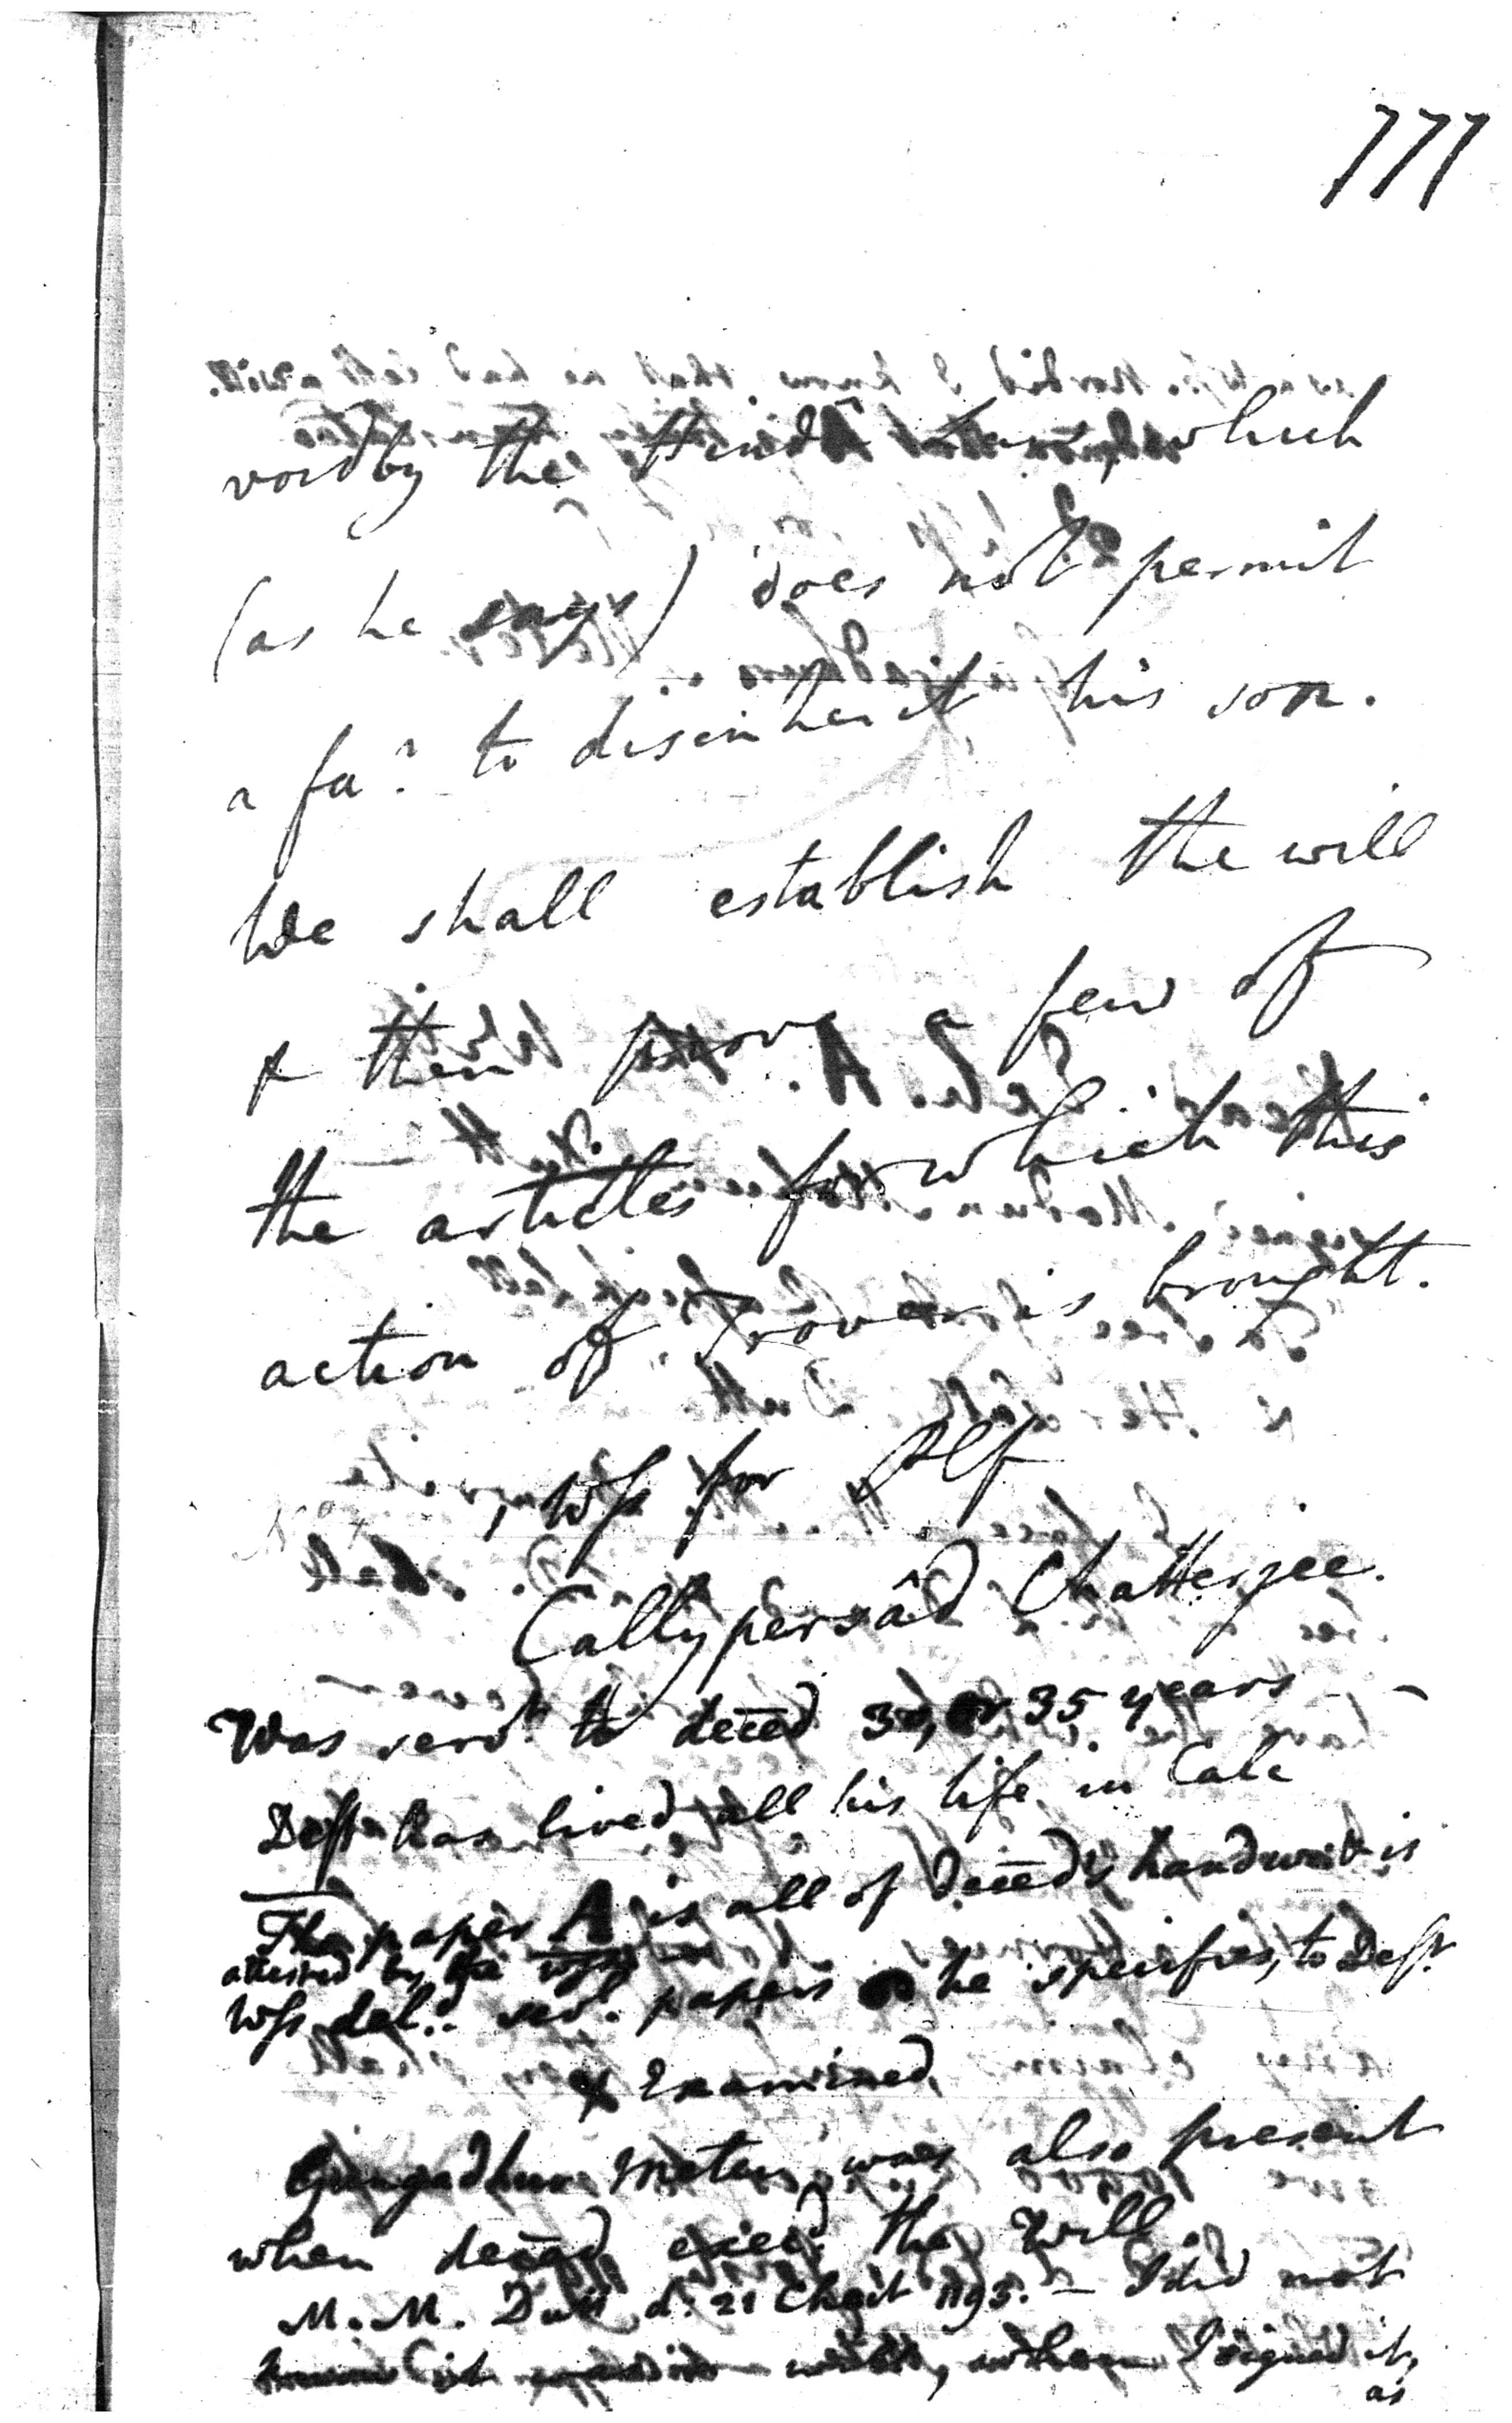 777
void by the Hindû Law, which
(as he says) does not permit
a fa.r to disinherit his son.
We shall establish the will
& then prove a few of
the articles for which this
action of Trover is brought.
1, Wss for Plf
Callypersâd Chatterjee.
Was serv.t to deced 30, or 35 years —
Deft has lived all his life in Calc
The paper A is all of deced's handwrit is
attested by the
Wss del.d sev.l papers he specifies, to Deft.
X Examined
Gungadhur Meter was also present
when deced exeed the Will.
M. M. Dutt d. 21 Chait 1193. — I did not
know it was a will, when I signed it,
as